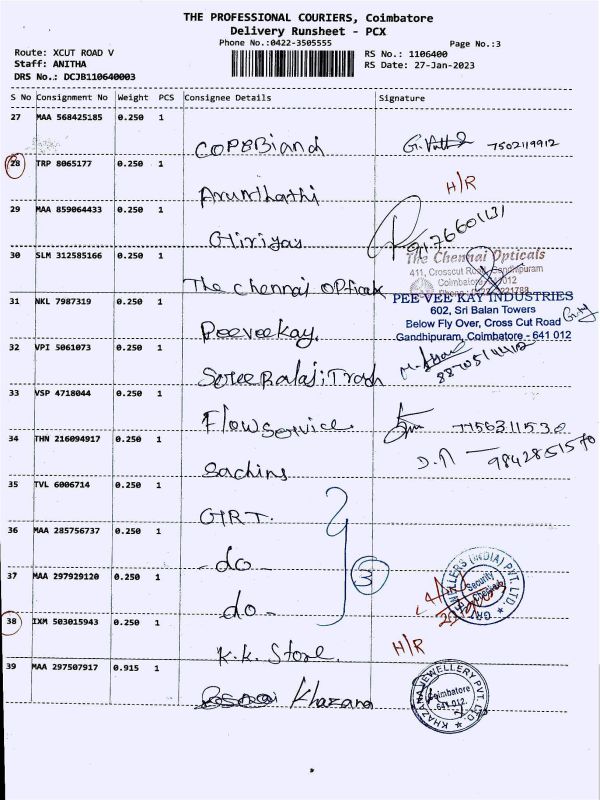 THE PROFESSIONAL COURIERS, Coimbatore
Delivery Runsheet - PCX
Phone No.:0422-3505555
Page No.:3
Route: XCUT ROAD V
RS No.: 1106400
Staff: ANITHA
RS Date: 27-Jan-2023
DRS No.: DCJB110640003
S No Consignment No Weight PCS Consignee Details Signature
27 MAA 568425185 0.250 1
7502119912
28 TRP 8065177 0.250 1
H/R
Arunthathi
29 MAA 859064433 0.250 1
Giriyas
30 SLM 312585166 0.250 1
The Chennai Opticals
411, Crosscut Road, Gandhipuram
Coimbatore
The Chennai Opticals
31 NKL 7987319 0.250 1
PEE VEE KAY INDUSTRIES
602, Sri Balan Towers
Below Fly Over, Cross Cut Road
Gandhipuram, Coimbatore - 641 012
Peeveekay.
32 VPI 5061073 0.250 1
33 VSP 4718044 0.250 1
Flow Service
34 THN 216094917 0.250 1
Sachins
9842851570
35 TVL 6006714 0.250 1
GRT.
36 MAA 285756737 0.250 1
- do -
3
37 MAA 297929120 0.250 1
do -
JEWELLERS (INDIA) PVT. LTD
Security
38 IXM 503015943 0.250 1
H/R
K.K. Store.
39 MAA 297507917 0.915 1
Khazana
KHAZANA JEWELLERY PVT. LTD.
Coimbatore
641 012.